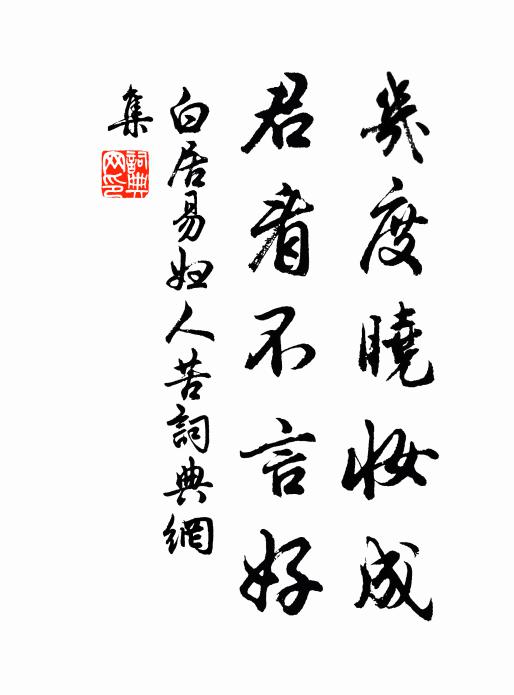 幾度曉妝成
君看不言好
白居易婦人苦詞典網
集
詞典
网印